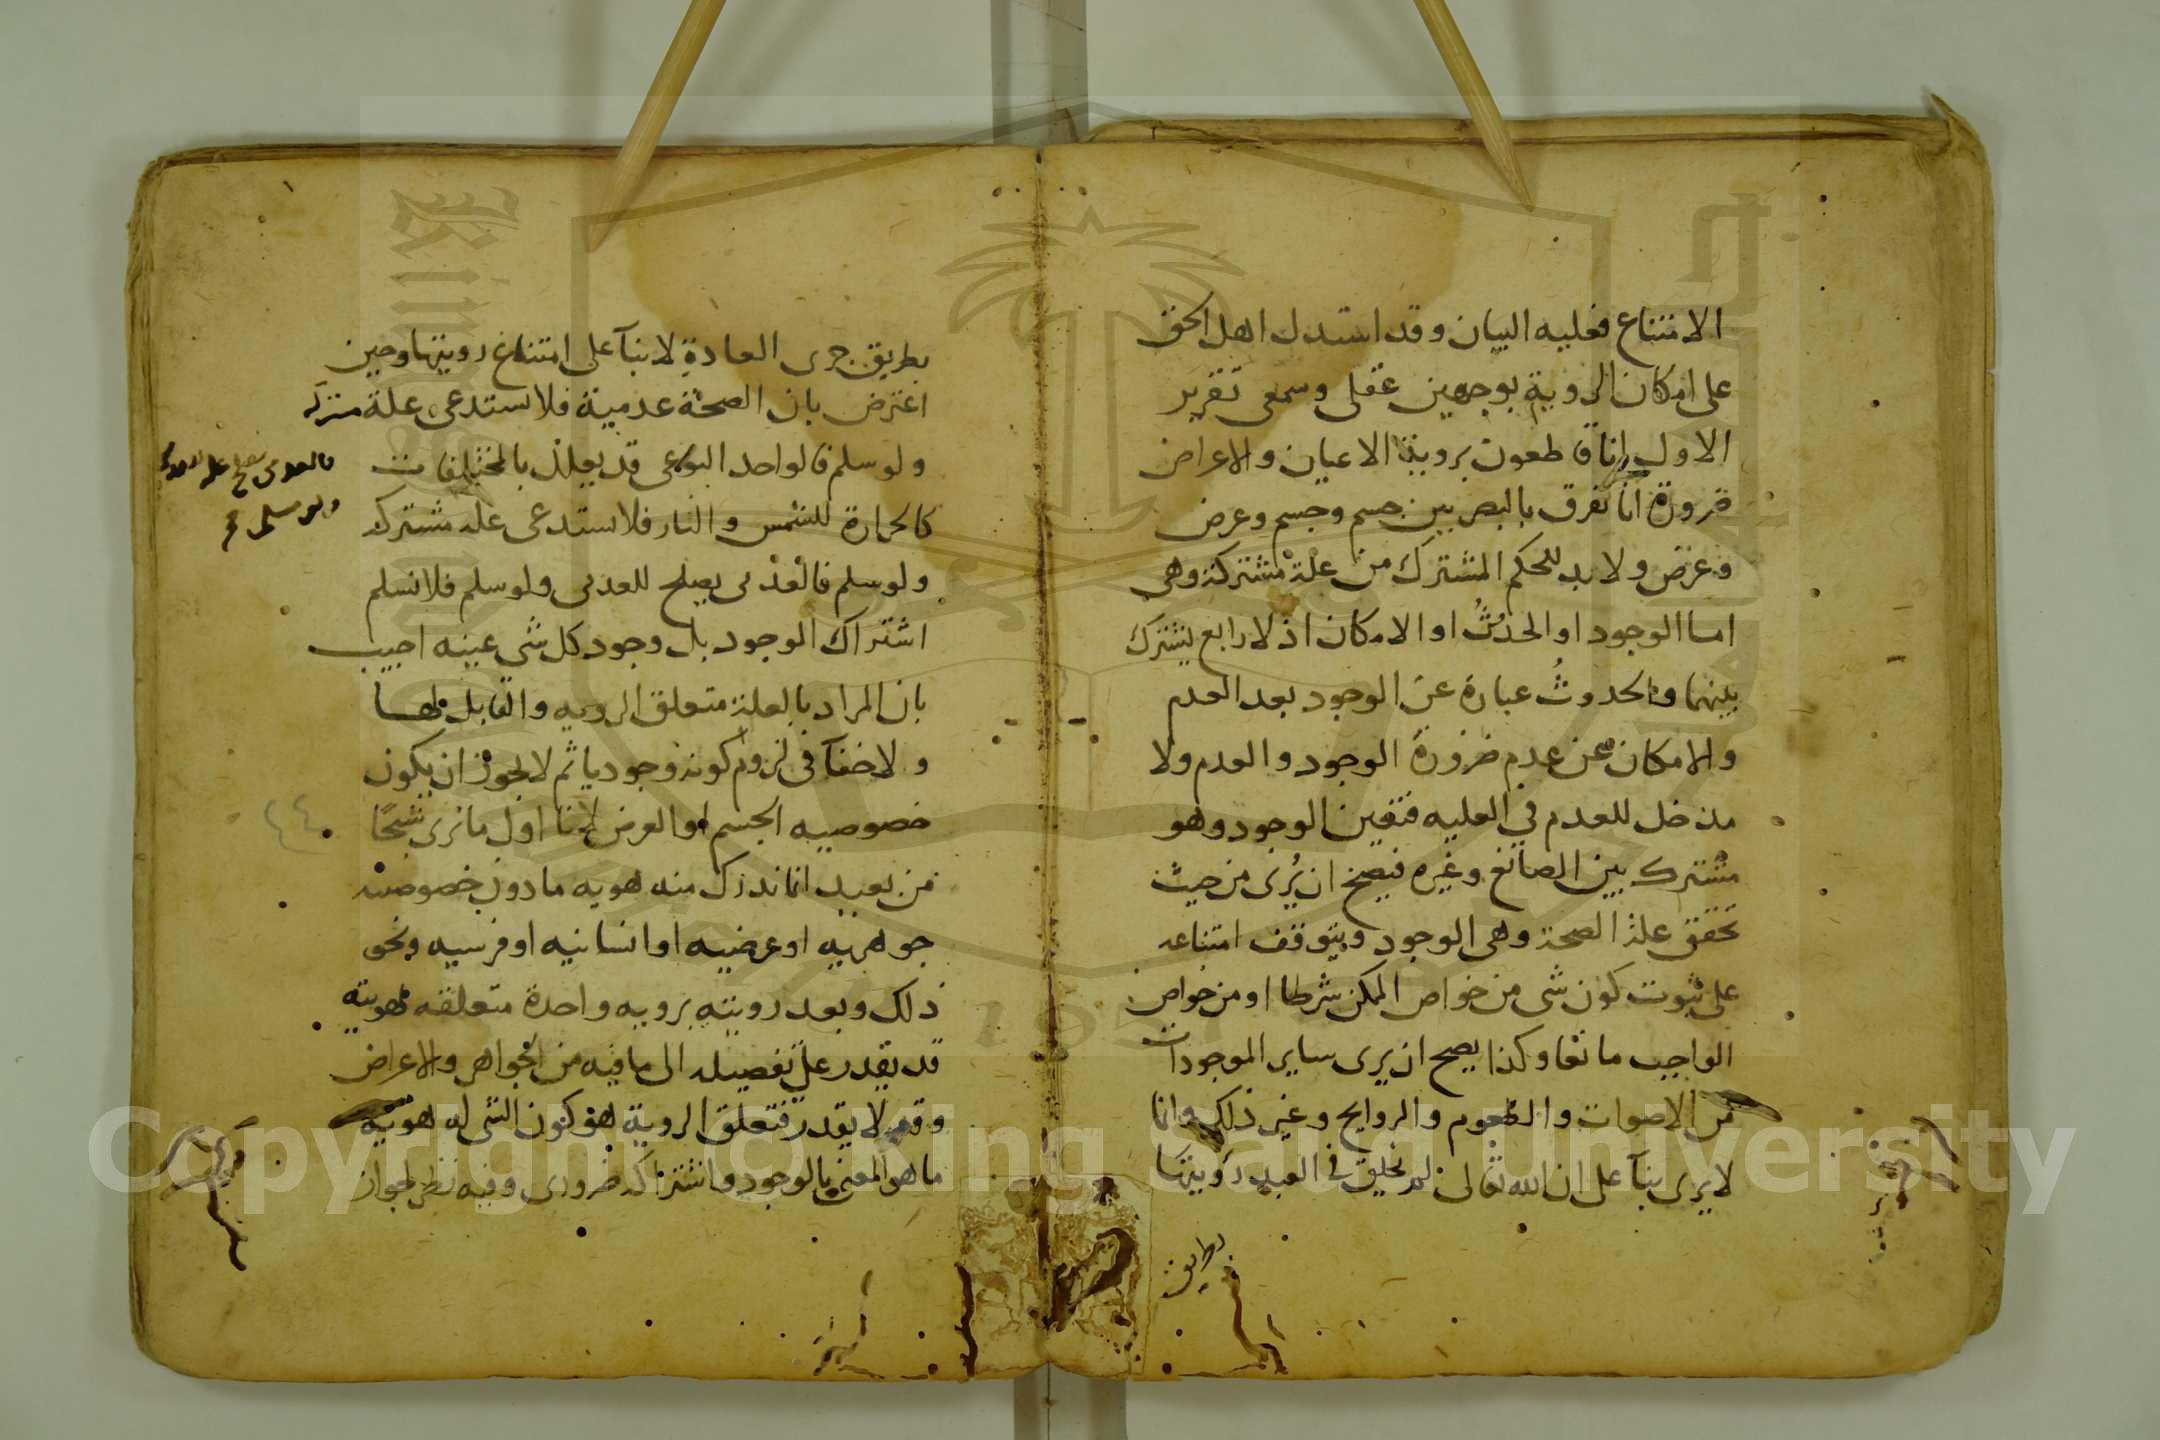 الامتناع فعليه البيان وقد استدل اهل الحق
على امكان الروية بوجهين عقلى وسمعى تقرير
الاول انا قاطعون بروية الاعيان والاعراض
ضرورة انا نفرق بالبصر بين جسم وجسم وعرض
وعرض ولا بد للحكم المشترك من علة مشتركة وهى
اما الوجود او الحدث او الامكان اذ لا رابع يشترك
بينهما والحدوث عبارة عن الوجود بعد العدم
والامكان عن عدم ضرورة الوجود والعدم ولا
مدخل للعدم في العليه فتعين الوجود وهو
مشترك بين الصانع وغيره فيصح ان يُرى من حيث
تحقق علة الصحة وهى الوجود ويتوقف امتناعه
على ثبوت كون شى من خواص الممكن شرطا او من خواص
الواجب مانعا وكذا يصح ان يرى ساير الموجودات
من الاصوات والطعوم والروايح وغير ذلك وانما
لا يرى بنآ على ان الله تعالى لم يخلق فى العبد رويتها
بطريق
بطريق جرى العادة لا بنآ على امتناع رويتها وحين
اعترض بان الصحة عدمية فلا تستدعى علة مشتركه
ولو سلم فالواحد النوعى قد يعلل بالمختلفات
كالحرارة للشمس والنار فلا تستدعى علة مشتركه
ولو سلم فالعدمى يصلح للعدمى ولو سلم فلا نسلم
اشتراك الوجود بل وجود كل شى عينه اجيب
بان المراد بالعلة متعلق الرويه والقابل لها
ولا خفآ فى لزوم كونه وجوديا ثم لا يجوز ان يكون
خصوصيه الجسم او العرض لانا اول ما نرى شبحًا
من بعيد انما ندرك منه هويه ما دون خصوصيه
جوهريه او عرضيه او انسانيه او فرسيه ونحو
ذلك وبعد رويته برويه واحدة متعلقه بهويته
قد يقدر على تفصيله الى ما فيه من الجواهر والاعراض
وقد لا يقدر فتعلق الروية هو كون الشى له هويه
ما هو المعنى بالوجود واشتراكه ضرورى وفيه نظر لجواز
Copyright © King Saud University
1957